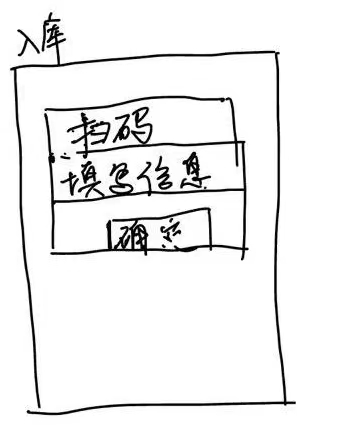 入库
扫码
填写信息
确定